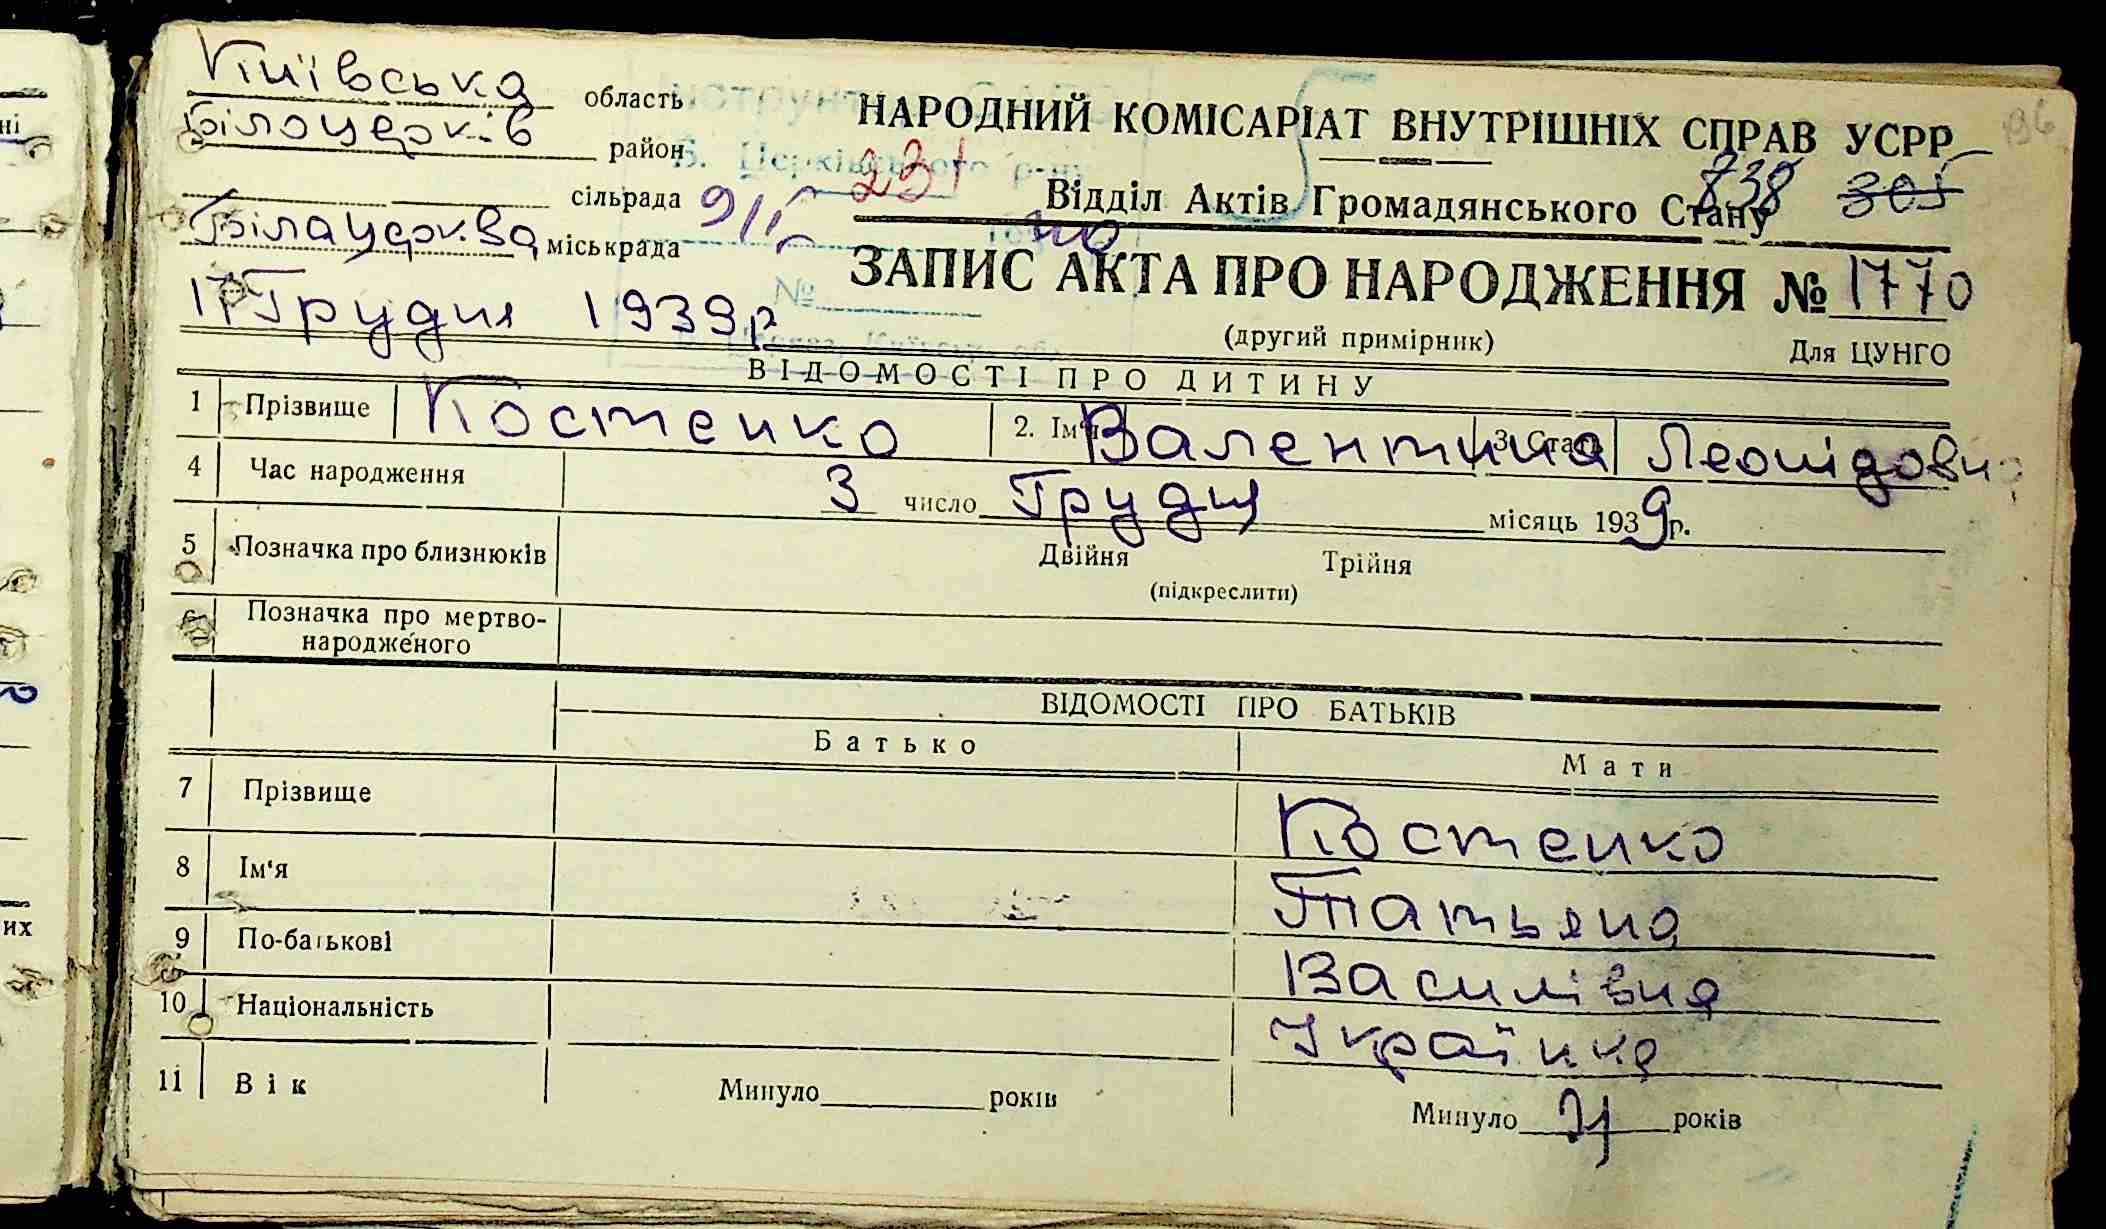 Київська область
Білоцерків район
сільрада
Білацерква міськрада
17 Грудня 1939 р
НАРОДНИЙ КОМІСАРІАТ ВНУТРІШНІХ СПРАВ УСРР
231
Відділ Актів Громадянського Стану
838 305
ЗАПИС АКТА ПРО НАРОДЖЕННЯ № 1770
(другий примірник)
Для ЦУНГО
№
ВІДОМОСТІ ПРО ДИТИНУ
1 Прізвище Костенко 2. Ім'я Валентина 3. Стать Леонідовна
4 Час народження 3 число Грудня місяць 1939 р.
5 Позначка про близнюків Двійня Трійня
(підкреслити)
6 Позначка про мертво-
народженого
ВІДОМОСТІ ПРО БАТЬКІВ
Батько Мати
7 Прізвище Костенко
8 Ім'я Татьяна
9 По-батькові Василівня
10 Національність Українка
11 Вік Минуло років Минуло 21 років
96
них